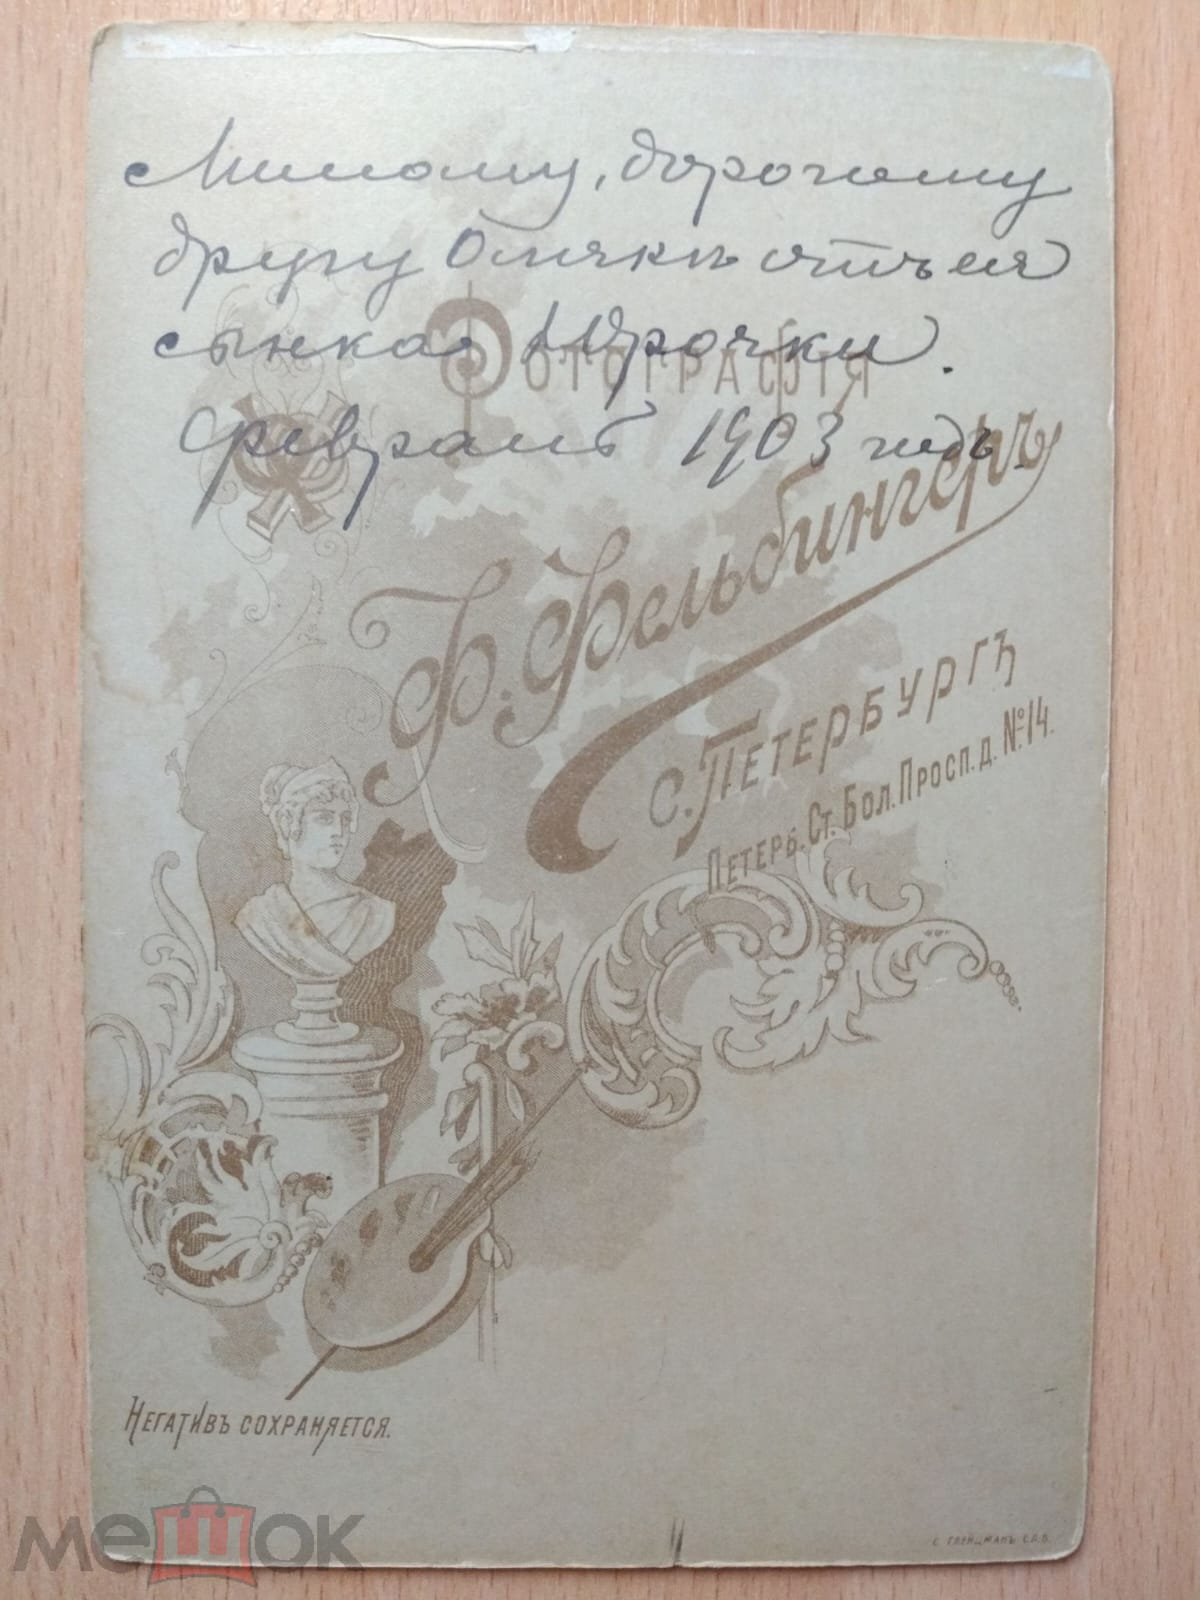 Милому, дорогому
другу Олячкѣ отъ ея
сынка Юрочки.
Февраль 1903 годъ.
Фотографія
Ф. Фельбингеръ
С. Петербургъ
Петерб. Ст. Бол. Просп. д. № 14.
Негативъ сохраняется.
С. Гленцманъ С.П.Б.
мешок